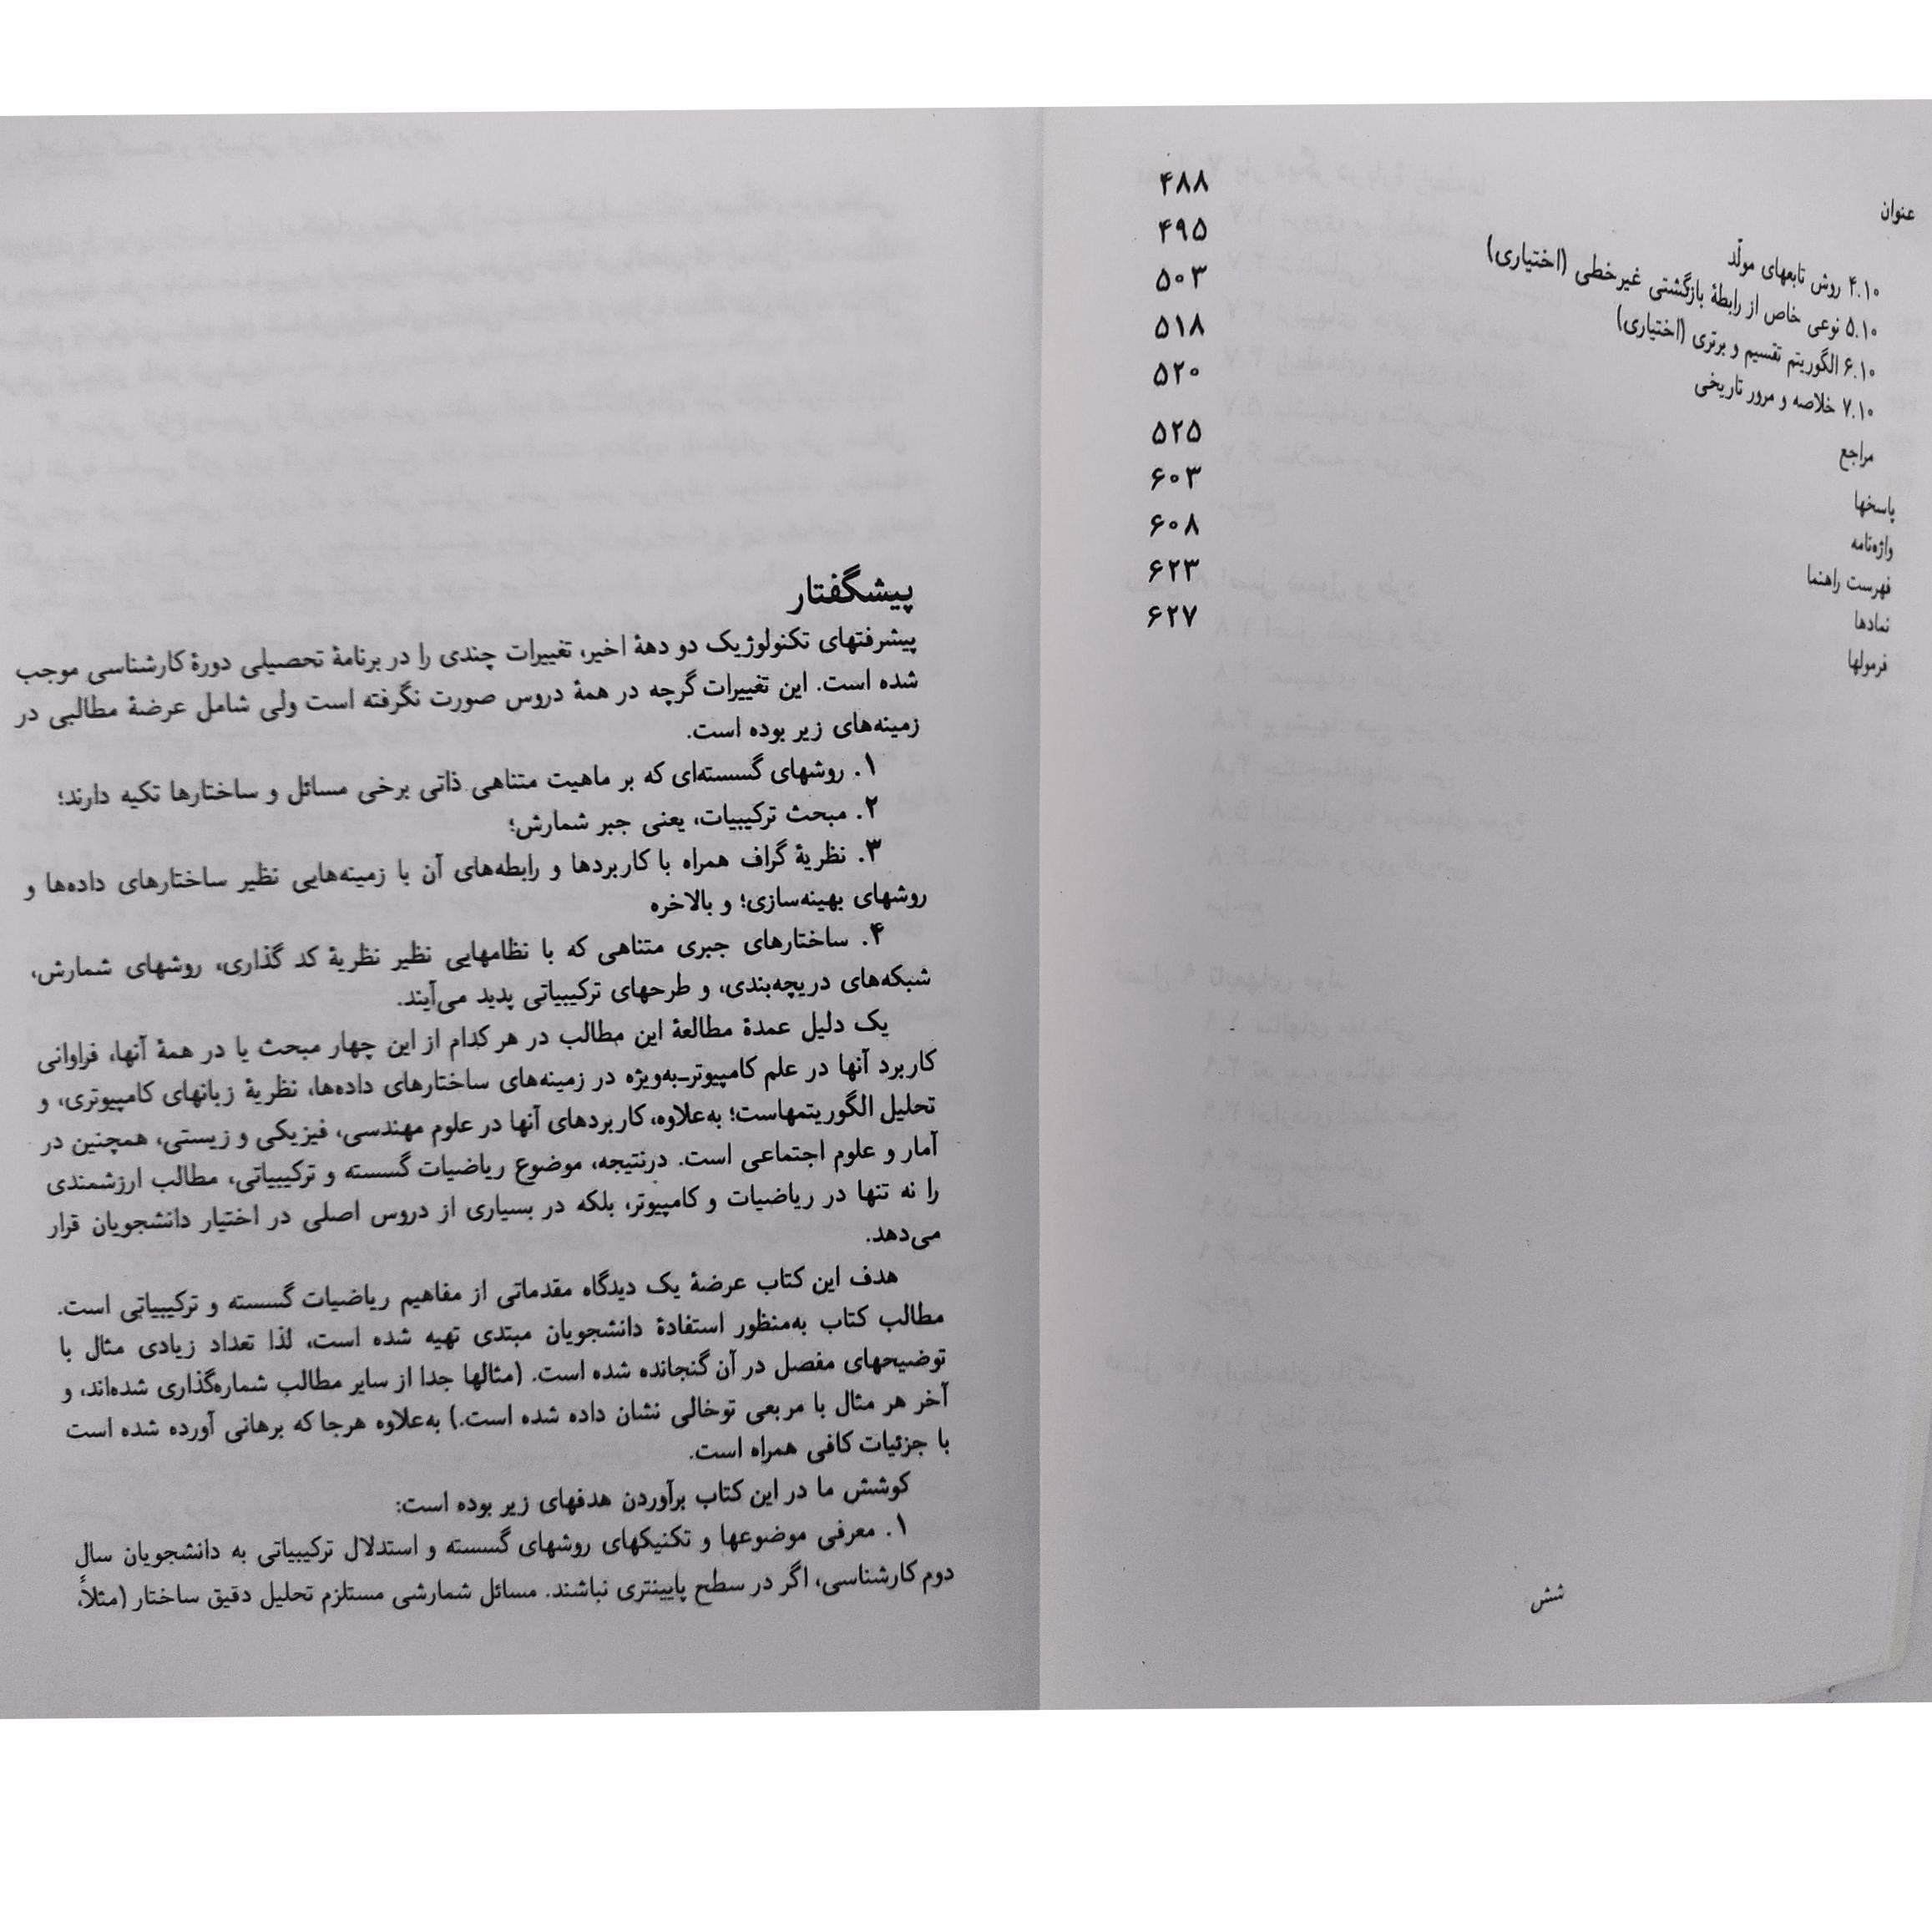 عنوان
۴.۱۰ روش تابعهای مولّد ۴۸۸
۵.۱۰ نوعی خاص از رابطهٔ بازگشتی غیرخطی (اختیاری) ۴۹۵
۶.۱۰ الگوریتم تقسیم و برتری (اختیاری) ۵۰۳
۷.۱۰ خلاصه و مرور تاریخی ۵۱۸
مراجع ۵۲۰
پاسخها ۵۲۵
واژه‌نامه ۶۰۳
فهرست راهنما ۶۰۸
نمادها ۶۲۳
فرمولها ۶۲۷
شش
پیشگفتار
پیشرفتهای تکنولوژیک دو دههٔ اخیر، تغییرات چندی را در برنامهٔ تحصیلی دورهٔ کارشناسی موجب
شده است. این تغییرات گرچه در همهٔ دروس صورت نگرفته است ولی شامل عرضهٔ مطالبی در
زمینه‌های زیر بوده است.
۱. روشهای گسسته‌ای که بر ماهیت متناهی ذاتی برخی مسائل و ساختارها تکیه دارند؛
۲. مبحث ترکیبیات، یعنی جبر شمارش؛
۳. نظریهٔ گراف همراه با کاربردها و رابطه‌های آن با زمینه‌هایی نظیر ساختارهای داده‌ها و
روشهای بهینه‌سازی؛ و بالاخره
۴. ساختارهای جبری متناهی که با نظامهایی نظیر نظریهٔ کد گذاری، روشهای شمارش،
شبکه‌های دریچه‌بندی، و طرحهای ترکیبیاتی پدید می‌آیند.
یک دلیل عمدهٔ مطالعهٔ این مطالب در هر کدام از این چهار مبحث یا در همهٔ آنها، فراوانی
کاربرد آنها در علم کامپیوترـبه‌ویژه در زمینه‌های ساختارهای داده‌ها، نظریهٔ زبانهای کامپیوتری، و
تحلیل الگوریتمهاست؛ به‌علاوه، کاربردهای آنها در علوم مهندسی، فیزیکی و زیستی، همچنین در
آمار و علوم اجتماعی است. درنتیجه، موضوع ریاضیات گسسته و ترکیبیاتی، مطالب ارزشمندی
را نه تنها در ریاضیات و کامپیوتر، بلکه در بسیاری از دروس اصلی در اختیار دانشجویان قرار
می‌دهد.
هدف این کتاب عرضهٔ یک دیدگاه مقدماتی از مفاهیم ریاضیات گسسته و ترکیبیاتی است.
مطالب کتاب به‌منظور استفادهٔ دانشجویان مبتدی تهیه شده است، لذا تعداد زیادی مثال با
توضیحهای مفصل در آن گنجانده شده است. (مثالها جدا از سایر مطالب شماره‌گذاری شده‌اند، و
آخر هر مثال با مربعی توخالی نشان داده شده است.) به‌علاوه هرجا که برهانی آورده شده است
با جزئیات کافی همراه است.
کوشش ما در این کتاب برآوردن هدفهای زیر بوده است:
۱. معرفی موضوعها و تکنیکهای روشهای گسسته و استدلال ترکیبیاتی به دانشجویان سال
دوم کارشناسی، اگر در سطح پایینتری نباشند. مسائل شمارشی مستلزم تحلیل دقیق ساختار (مثلاً،